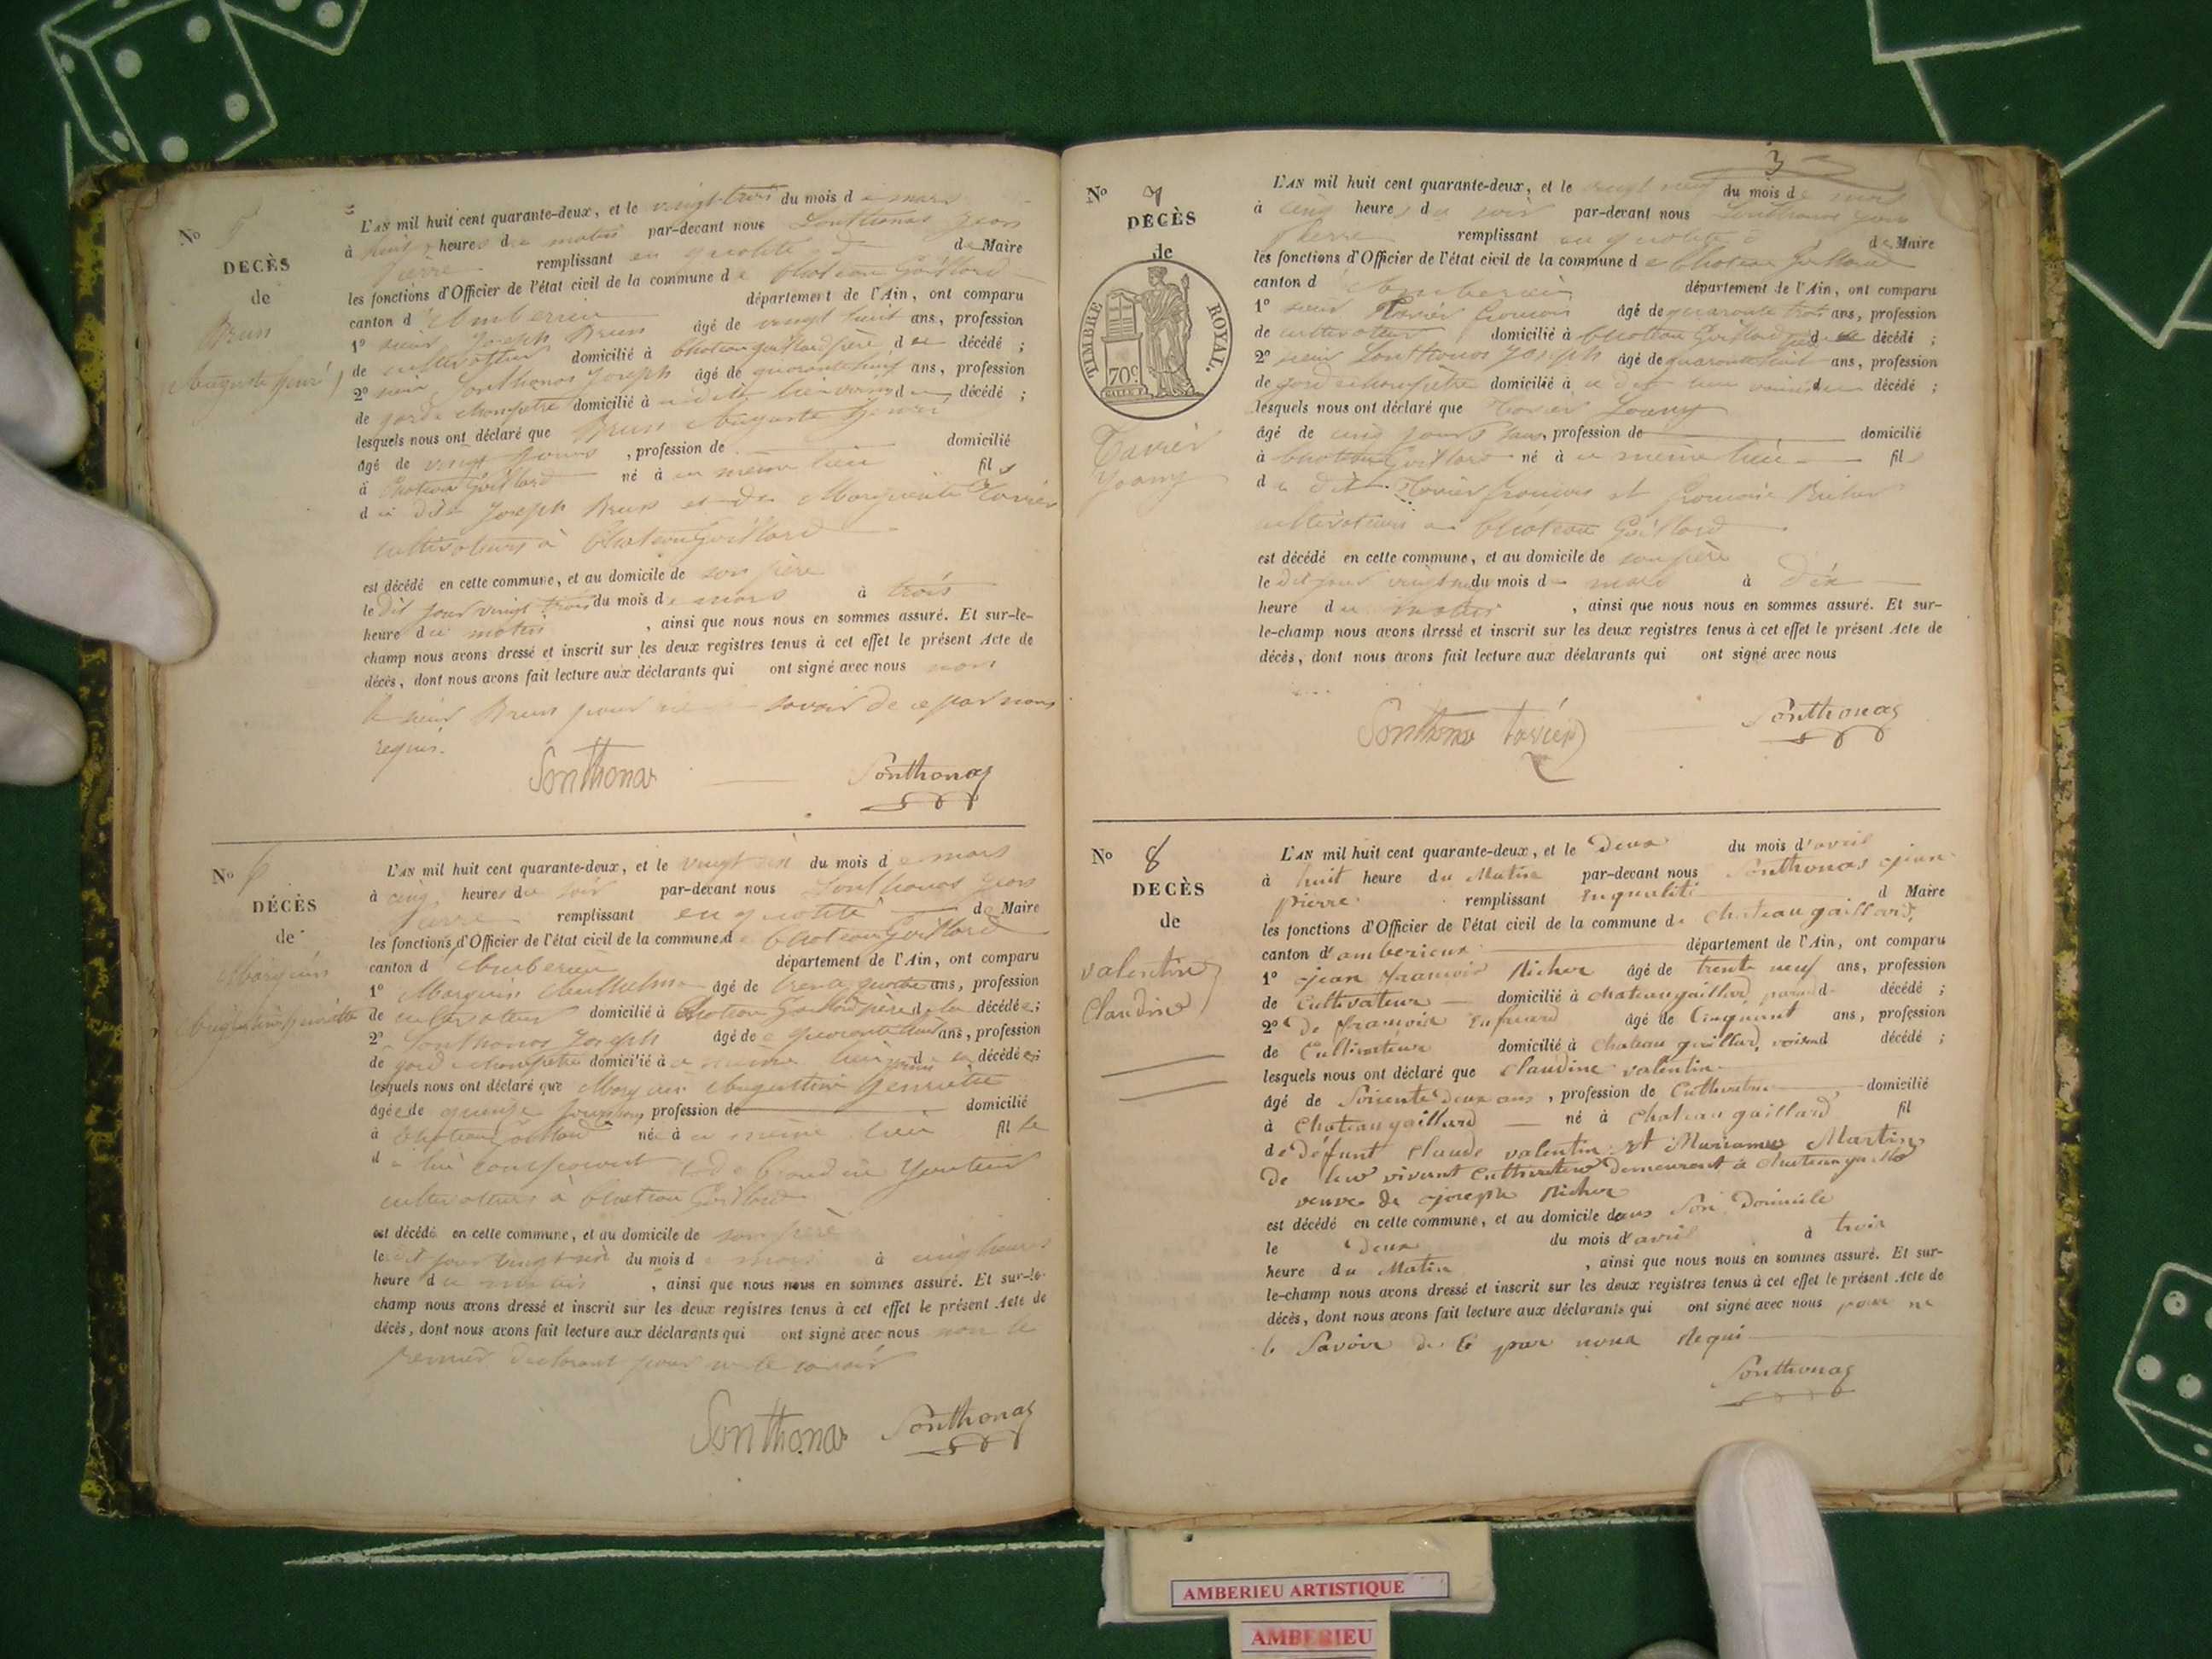 No 5
DECÈS
de
Brun
Auguste henri
L'AN mil huit cent quarante-deux, et le vingt trois du mois de mars
à heures du matin par-devant nous Sonthonas jean
pierre remplissant en qualité de Maire
les fonctions d'Officier de l'état civil de la commune de Chateau Gaillard
canton d'Amberieu département de l'Ain, ont comparu
1o sieur Joseph Brun âgé de vingt huit ans, profession
de cultivateur domicilié à Chateau gaillard père du décédé ;
2o sieur Sonthonas Joseph âgé de quarante huit ans, profession
de garde champetre domicilié à voisin du décédé ;
lesquels nous ont déclaré que Brun Auguste henri
âgé de vingt jours, profession de domicilié
à Chateau Gaillard né à ce même lieu fils
du dit Joseph Brun et de Marguerite Tavier
cultivateurs à Chateau Gaillard
est décédé en cette commune, et au domicile de son père
le dit jour vingt trois du mois de mars à trois
heure du matin , ainsi que nous nous en sommes assuré. Et sur-le-
champ nous avons dressé et inscrit sur les deux registres tenus à cet effet le présent Acte de
décès, dont nous avons fait lecture aux déclarants qui ont signé avec nous non
le sieur Brun pour savoir de ce par nous
requis.
Sonthonas Sonthonas
No 6
DÉCÈS
de
Marguin
Augustine henriette
L'AN mil huit cent quarante-deux, et le vingt six du mois de mars
à cinq heures du soir par-devant nous Sonthonas jean
pierre remplissant en qualité de Maire
les fonctions d'Officier de l'état civil de la commune de Chateau Gaillard
canton d'Amberieu département de l'Ain, ont comparu
1o Marguin Anthelme âgé de trente quatre ans, profession
de cultivateur domicilié à Chateau Gaillard père de la décédée ;
2o Sonthonas Joseph âgé de quarante huit ans, profession
de garde champetre domicilié à ce même lieu voisin décédée ;
lesquels nous ont déclaré que Marguin Augustine henriette
âgée de quinze jours, profession de domicilié
à Chateau Gaillard née à ce même lieu fille
du lui comparant et de
cultivateurs à Chateau Gaillard
est décédé en cette commune, et au domicile de son père
le dit jour vingt six du mois de mars à cinq heures
heure du matin , ainsi que nous nous en sommes assuré. Et sur-le-
champ nous avons dressé et inscrit sur les deux registres tenus à cet effet le présent Acte de
décès, dont nous avons fait lecture aux déclarants qui ont signé avec nous non le
premier declarant pour ne le savoir
Sonthonas Sonthonas
3
No 7
DÉCÈS
de
TIMBRE ROYAL.
70c
Tavier
Joany
L'AN mil huit cent quarante-deux, et le vingt neuf du mois de mars
à cinq heures du soir par-devant nous Sonthonas jean
pierre remplissant en qualité de Maire
les fonctions d'Officier de l'état civil de la commune de Chateau Gaillard
canton d'Amberieu département de l'Ain, ont comparu
1o sieur Tavier françois âgé de quarante trois ans, profession
de cultivateur domicilié à Chateau Gaillard père du décédé ;
2o sieur Sonthonas Joseph âgé de quarante huit ans, profession
de garde champêtre domicilié à ce dit lieu voisin du décédé ;
lesquels nous ont déclaré que Tavier Joany
âgé de cinq jours sans, profession de domicilié
à Chateau Gaillard né à ce même lieu fils
du dit Tavier françois et françoise
cultivateurs à Chateau Gaillard
est décédé en cette commune, et au domicile de son père
le dit jour vingt neuf du mois de mars à dix
heure du matin , ainsi que nous nous en sommes assuré. Et sur-
le-champ nous avons dressé et inscrit sur les deux registres tenus à cet effet le présent Acte de
décès, dont nous avons fait lecture aux déclarants qui ont signé avec nous
Sonthonas tavier Sonthonas
No 8
DÉCÈS
de
valentin
Claudine
L'AN mil huit cent quarante-deux, et le Deux du mois d'avril
à huit heure du Matin par-devant nous Sonthonas jean
pierre remplissant En qualité d Maire
les fonctions d'Officier de l'état civil de la commune de Chateau gaillard,
canton d'amberieux département de l'Ain, ont comparu
1o jean françois Richer âgé de trente neuf ans, profession
de Cultivateur domicilié à chateaugaillard d décédé ;
2o de françois âgé de Cinquant ans, profession
de Cultivateur domicilié à Chateau gaillard, voisin d décédé ;
lesquels nous ont déclaré que Claudine valentin
âgé de Soixente deux ans , profession de Cultivatrice domicilié
à Chateaugaillard né à Chateau gaillard fil
de Défunt Claude valentin et Marianne Martin
De leur vivant Cultivateur Demeurant à chateaugaillard
veuve de joseph Richer
est décédé en cette commune, et au domicile dans Son Domicile
le Deux du mois d'avril à trois
heure du Matin , ainsi que nous nous en sommes assuré. Et sur-
le-champ nous avons dressé et inscrit sur les deux registres tenus à cet effet le présent Acte de
décès, dont nous avons fait lecture aux déclarants qui ont signé avec nous pour ne
le Savoir de Ce par nous Requi
Sonthonas
AMBERIEU ARTISTIQUE
AMBERIEU